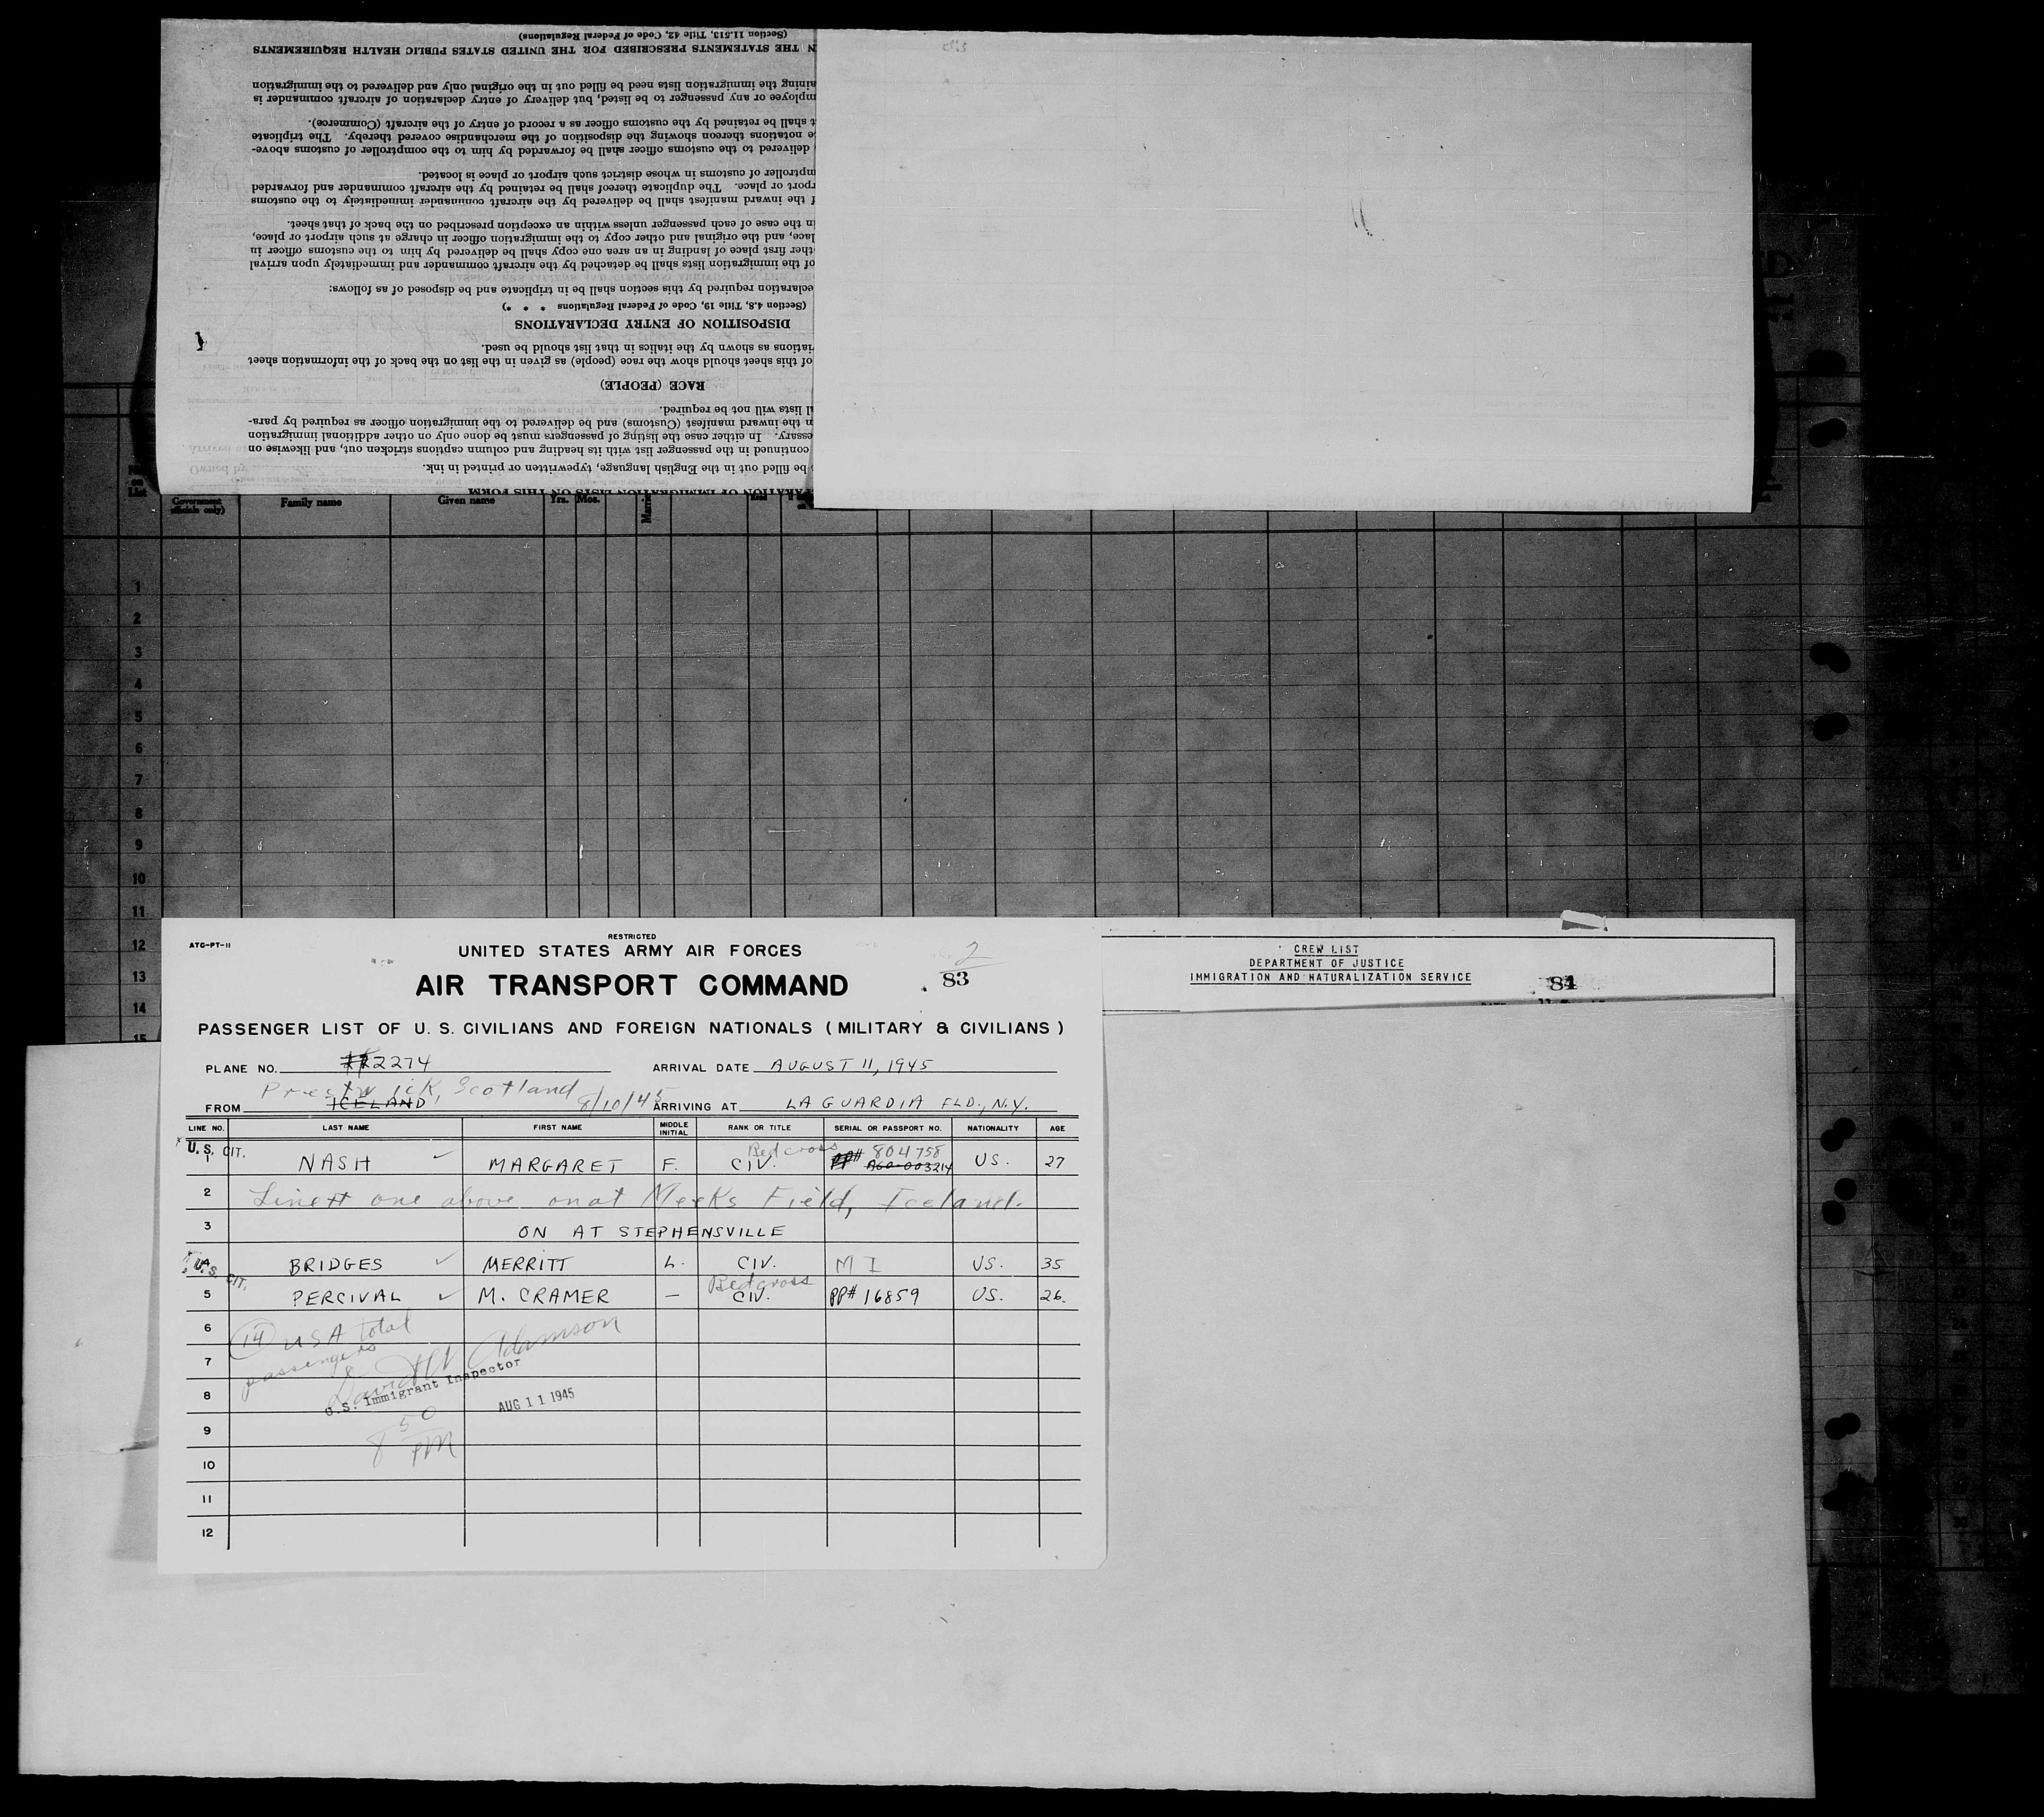 (Section 11.513, Title 42, Code of Federal Regulations)
N THE STATEMENTS PRESCRIBED FOR THE UNITED STATES PUBLIC HEALTH REQUIREMENTS
aining the immigration lists need be filled out in the original only and delivered to the immigration
mployee or any passenger to be listed, but delivery of entry declaration of aircraft commander is
t shall be retained by the customs officer as a record of entry of the aircraft (Commerce).
e notations thereon showing the disposition of the merchandise covered thereby. The triplicate
delivered to the customs officer shall be forwarded by him to the comptroller of customs above-
mptroller of customs in whose district such airport or place is located.
rport or place. The duplicate thereof shall be retained by the aircraft commander and forwarded
f the inward manifest shall be delivered by the aircraft commander immediately to the customs
in the case of each passenger unless within an exception prescribed on the back of that sheet.
lace, and the original and other copy to the immigration officer in charge at such airport or place,
ther first place of landing in an area one copy shall be delivered by him to the customs officer in
of the immigration lists shall be detached by the aircraft commander and immediately upon arrival
eclaration required by this section shall be in triplicate and be disposed of as follows:
(Section 4.8, Title 19, Code of Federal Regulations * * *)
DISPOSITION OF ENTRY DECLARATIONS
iations as shown by the italics in that list should be used.
of this sheet should show the race (people) as given in the list on the back of the information sheet
RACE (PEOPLE)
al lists will not be required.
n the inward manifest (Customs) and be delivered to the immigration officer as required by para-
essary. In either case the listing of passengers must be done only on other additional immigration
continued in the passenger list with its heading and column captions stricken out, and likewise on
be filled out in the English language, typewritten or printed in ink.
ARATION OF IMMIGRATION LISTS ON THIS FORM
No. on List Government officials only) Family name Given name Yrs. Mos.
1
2
3
4
5
6
7
8
9
10
11
12
13
14
15
ATC-PT-11
RESTRICTED
UNITED STATES ARMY AIR FORCES
2
AIR TRANSPORT COMMAND
83
PASSENGER LIST OF U. S. CIVILIANS AND FOREIGN NATIONALS ( MILITARY & CIVILIANS )
PLANE NO. 2274 ARRIVAL DATE AUGUST 11, 1945
Prestwick, Scotland 8/10/45
FROM ICELAND ARRIVING AT LA GUARDIA FLD., N.Y.
LINE NO. LAST NAME FIRST NAME MIDDLE INITIAL RANK OR TITLE SERIAL OR PASSPORT NO. NATIONALITY AGE
U.S. CIT. Red cross 804758
1 NASH MARGARET F. CIV. PP# AGO-003214 US. 27
2 Line # one above on at Meeks Field, Iceland.
3 ON AT STEPHENSVILLE
4 U.S. CIT. BRIDGES MERRITT L. CIV. M I US. 35
Red cross
5 PERCIVAL M. CRAMER — CIV. PP# 16859 US. 26.
6 14 USA total
7 passengers
David W Adamson
8 U.S. Immigrant Inspector AUG 11 1945
9 8 50 PM
10
11
12
CREW LIST
DEPARTMENT OF JUSTICE
IMMIGRATION AND NATURALIZATION SERVICE
84